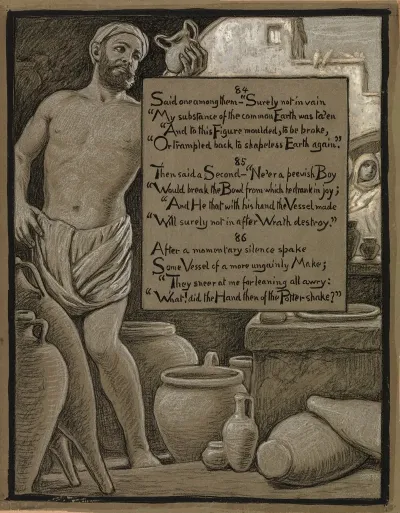 84
Said one among them—"Surely not in vain
"My substance of the common Earth was ta'en
"And to this Figure moulded, to be broke,
"Or trampled back to shapeless Earth again."
85
Then said a Second—"Ne'er a peevish Boy
"Would break the Bowl from which he drank in joy;
"And He that with his hand the Vessel made
"Will surely not in after Wrath destroy."
86
After a momentary silence spake
Some Vessel of a more ungainly Make;
"They sneer at me for leaning all awry:
"What! did the Hand then of the Potter shake?"